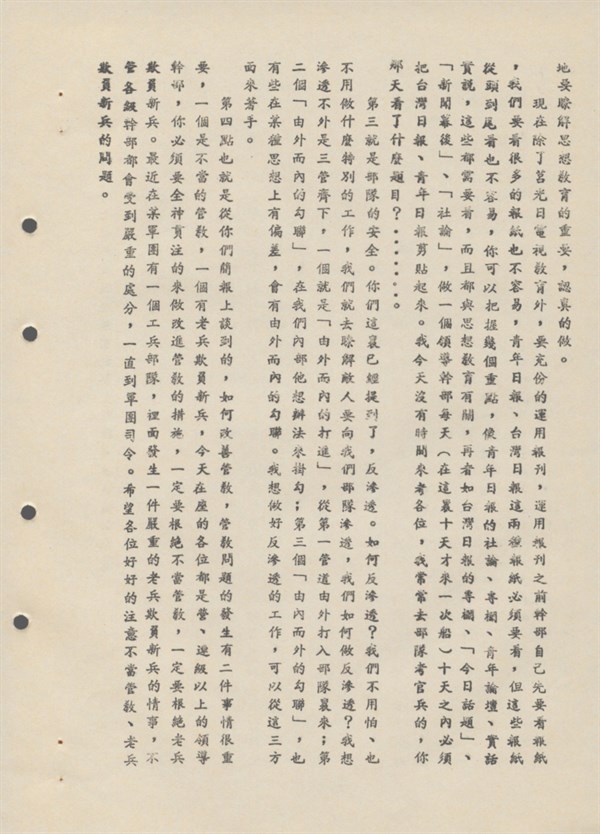 地要瞭解思想教育的重要，認真的做。
現在除了莒光日電視教育外，要充份的運用報刊，運用報刊之前幹部自己先要看報紙
，我們要看很多的報紙也不容易，青年日報、台灣日報這兩種報紙必須要看，但這些報紙
從頭到尾看也不容易，你可以把握幾個重點，像青年日報的社論、專欄、青年論壇、實話
實說，這些都需要看，而且都與思想教育有關，再者如台灣日報的專欄、「今日話題」、
「新聞幕後」、「社論」，做一個領導幹部每天（在這裏十天才來一次船）十天之內必須
把台灣日報、青年日報剪貼起來。我今天沒有時間來考各位，我常常去部隊考官兵的，你
那天看了什麼題目？・・・・・・。
第三就是部隊的安全。你們這裏已經提到了，反滲透。如何反滲透？我們不用怕、也
不用做什麼特別的工作，我們就去瞭解敵人要向我們部隊滲透，我們如何做反滲透？我想
滲透不外是三管齊下，一個就是「由外而內的打進」，從第一管道由外打入部隊裏來；第
二個「由外而內的勾聯」，在我們內部他想辦法來掛勾；第三個「由內而外的勾聯」，也
有些在某種思想上有偏差，會有由外而內的勾聯。我想做好反滲透的工作，可以從這三方
面來著手。
第四點也就是從你們簡報上談到的，如何改善管教，管教問題的發生有二件事情很重
要，一個是不當的管教，一個有老兵欺負新兵，今天在座的各位都是營、連級以上的領導
幹部，你必須要全神貫注的來做改進管教的措施，一定要根絕不當管教，一定要根絕老兵
欺負新兵。最近在某軍團有一個工兵部隊，裡面發生一件嚴重的老兵欺負新兵的情事，不
管各級幹部都會受到嚴重的處分，一直到軍團司令。希望各位好好的注意不當管教、老兵
欺負新兵的問題。